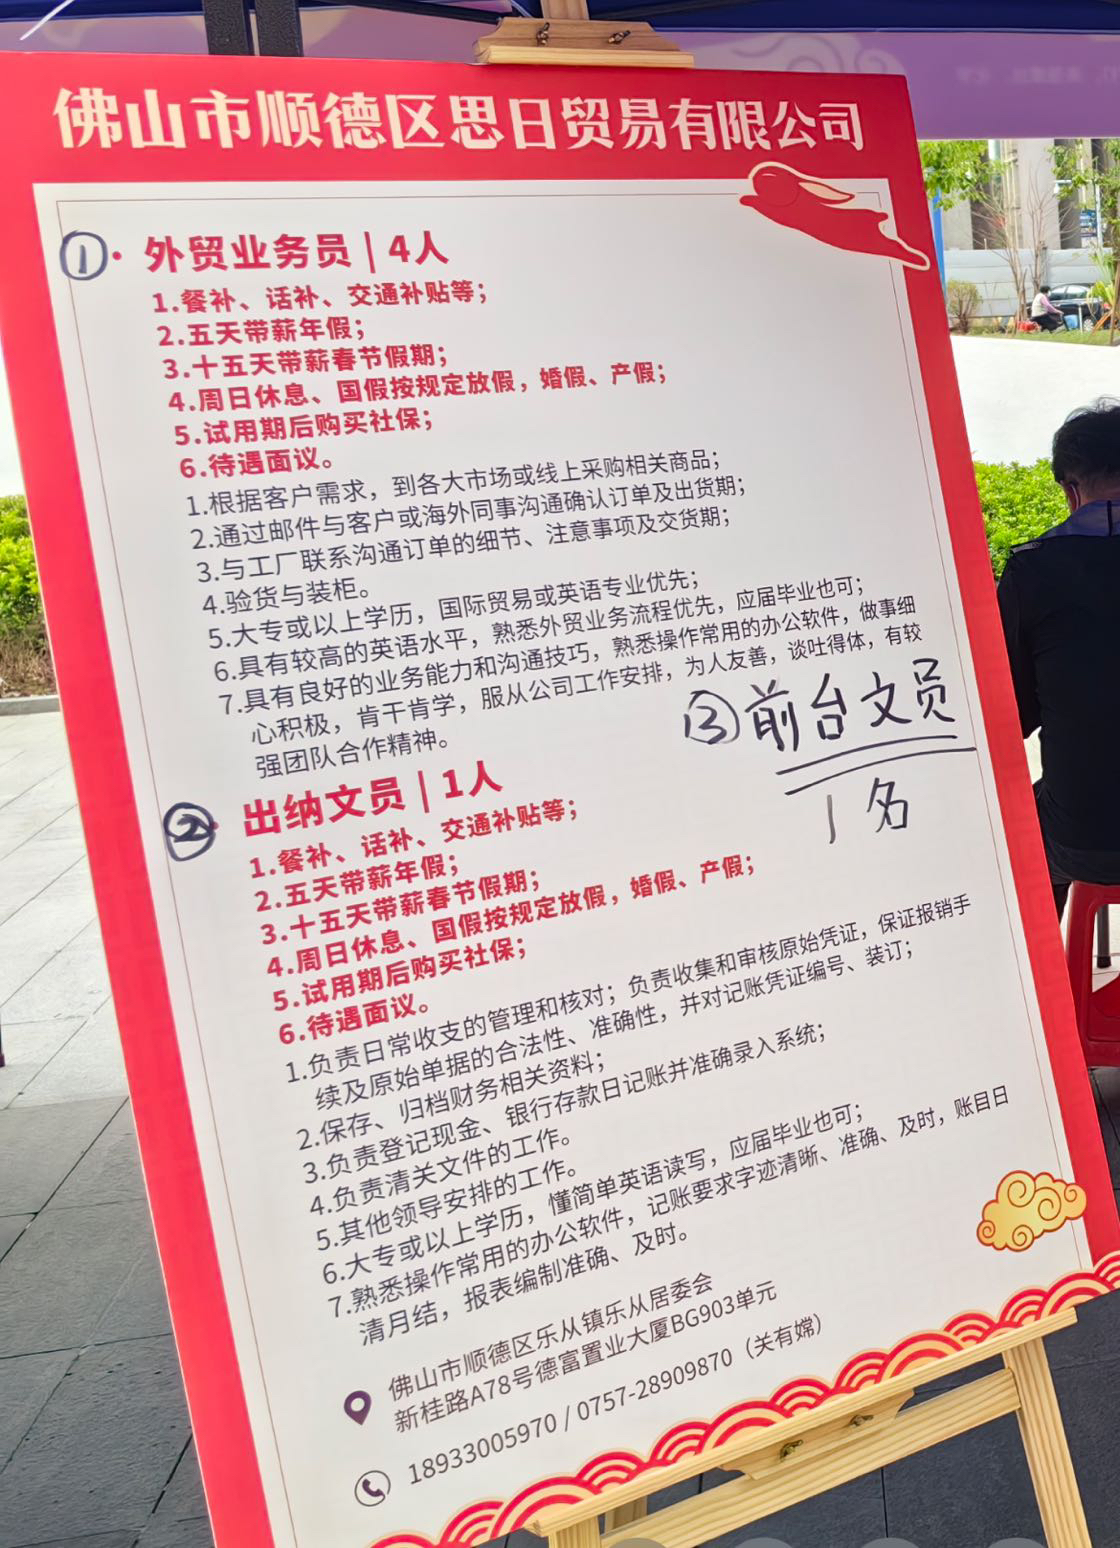 佛山市顺德区思日贸易有限公司
①·外贸业务员 | 4人
1.餐补、话补、交通补贴等；
2.五天带薪年假；
3.十五天带薪春节假期；
4.周日休息、国假按规定放假，婚假、产假；
5.试用期后购买社保；
6.待遇面议。
1.根据客户需求，到各大市场或线上采购相关商品；
2.通过邮件与客户或海外同事沟通确认订单及出货期；
3.与工厂联系沟通订单的细节、注意事项及交货期；
4.验货与装柜。
5.大专或以上学历，国际贸易或英语专业优先；
6.具有较高的英语水平，熟悉外贸业务流程优先，应届毕业也可；
7.具有良好的业务能力和沟通技巧，熟悉操作常用的办公软件，做事细
心积极，肯干肯学，服从公司工作安排，为人友善，谈吐得体，有较
强团队合作精神。
③前台文员
1名
②出纳文员 | 1人
1.餐补、话补、交通补贴等；
2.五天带薪年假；
3.十五天带薪春节假期；
4.周日休息、国假按规定放假，婚假、产假；
5.试用期后购买社保；
6.待遇面议。
1.负责日常收支的管理和核对；负责收集和审核原始凭证，保证报销手
续及原始单据的合法性、准确性，并对记账凭证编号、装订；
2.保存、归档财务相关资料；
3.负责登记现金、银行存款日记账并准确录入系统；
4.负责清关文件的工作。
5.其他领导安排的工作。
6.大专或以上学历，懂简单英语读写，应届毕业也可；
7.熟悉操作常用的办公软件，记账要求字迹清晰、准确、及时，账目日
清月结，报表编制准确、及时。
佛山市顺德区乐从镇乐从居委会
新桂路A78号德富置业大厦BG903单元
18933005970 / 0757-28909870（关有嫦）